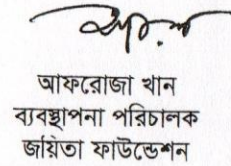 আফরোজা খান
ব্যবস্থাপনা পরিচালক
জয়িতা ফাউন্ডেশন